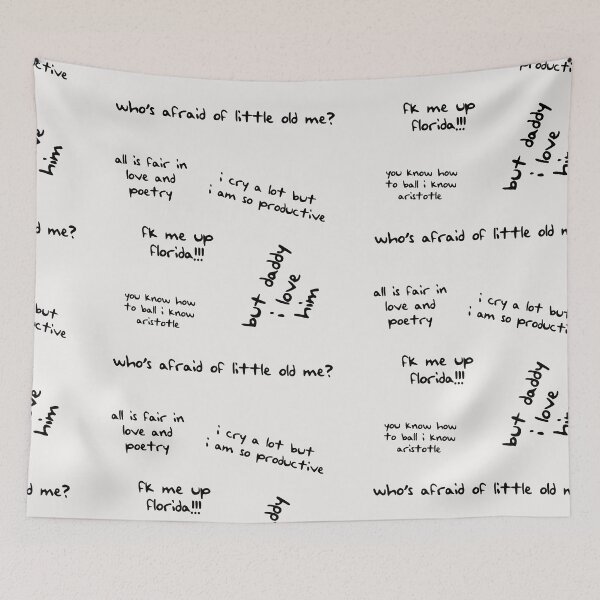 ctive
producti
who's afraid of little old me?
fk me up
florida!!!
but daddy
i love
hi
ve
him
all is fair in
love and
poetry
i cry a lot but
i am so productive
you know how
to ball i know
aristotle
d me?
fk me up
florida!!!
but daddy
i love
him
who's afraid of little old m
you know how
to ball i know
aristotle
all is fair in
love and
poetry
i cry a lot but
i am so productiv
but
ctive
who's afraid of little old me?
fk me up
florida!!!
but daddy
i love
hi
ve
him
all is fair in
love and
poetry
i cry a lot but
i am so productive
you know how
to ball i know
aristotle
d me?
fk me up
florida!!!
ddy
who's afraid of little old m